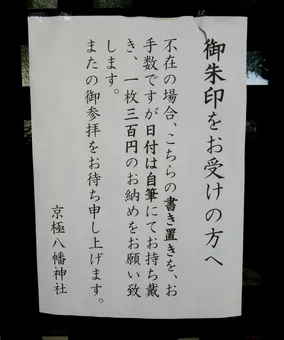 御朱印をお受けの方へ
不在の場合、こちらの書き置きを、お
手数ですが日付は自筆にてお持ち戴
き、一枚三百円のお納めをお願い致
します。
またの御参拝をお待ち申し上げます。
京極八幡神社